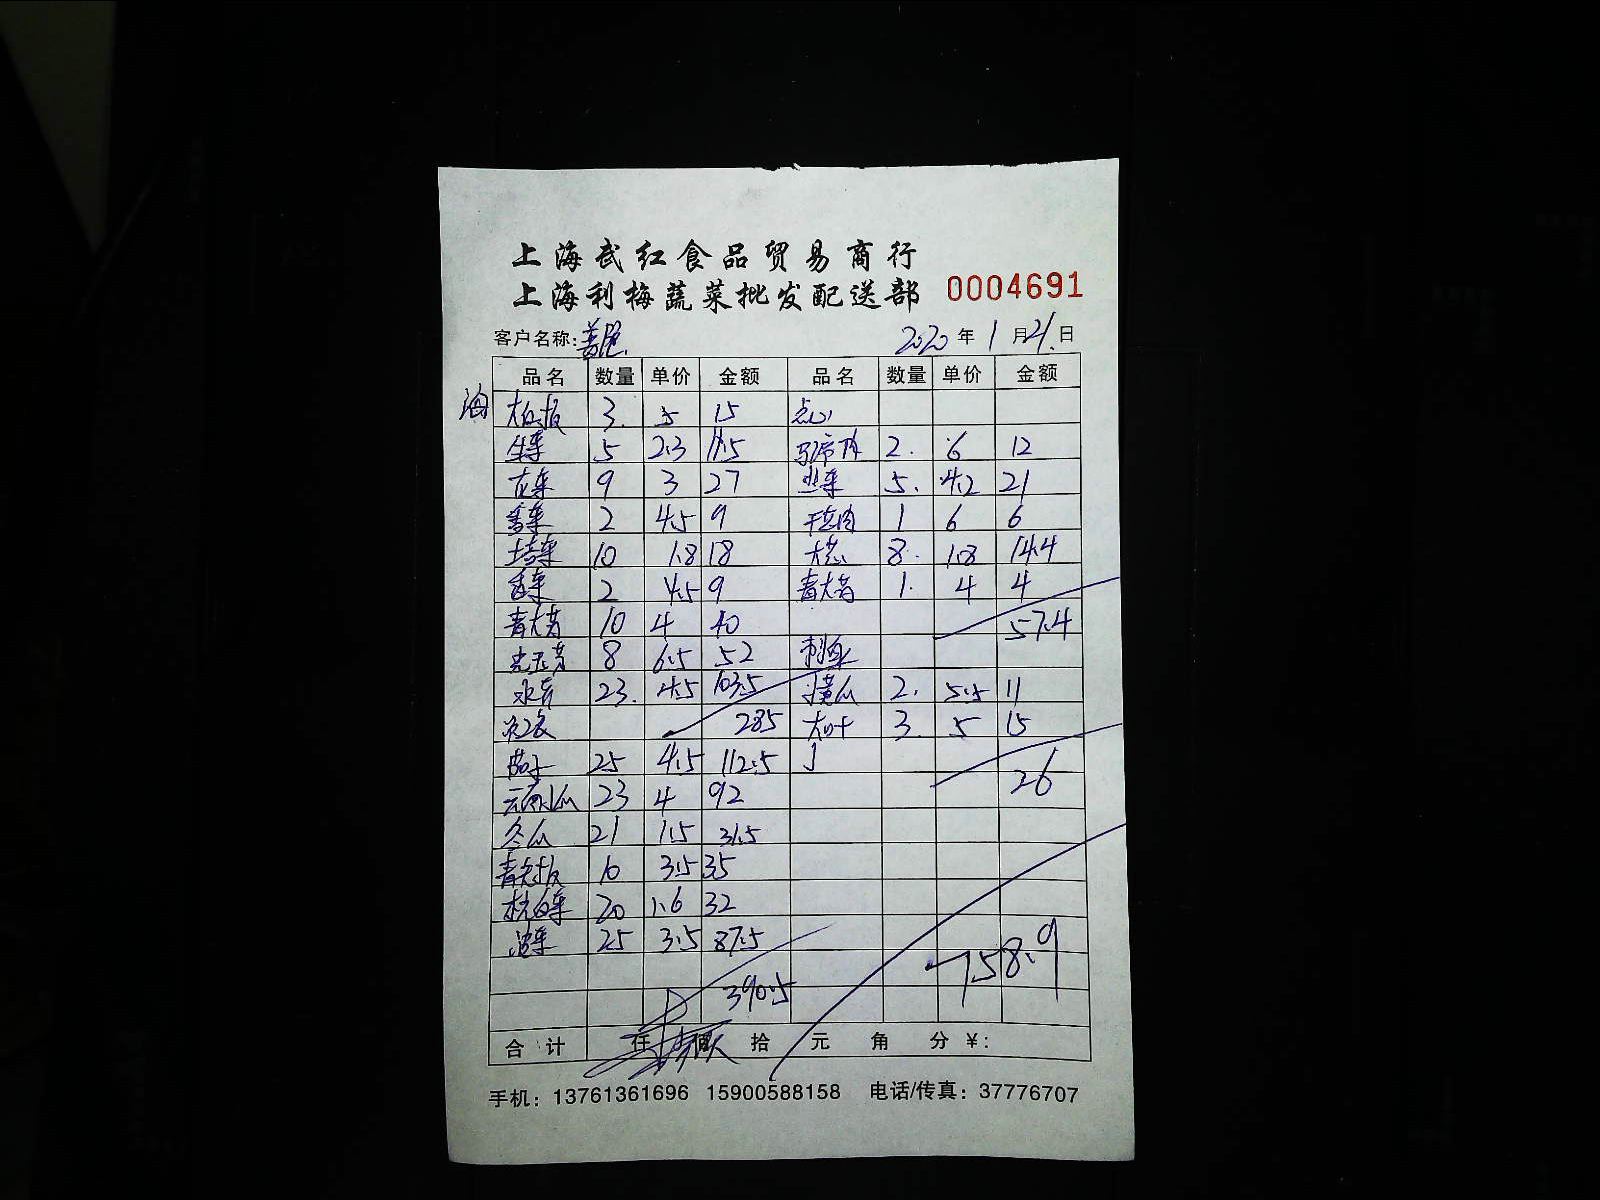 上海武红食品贸易商行
上海利梅蔬菜批发配送部 0004691
客户名称: 2020年1月21日
品名 数量 单价 金额 品名 数量 单价 金额
海 3. 5 15 点心
生菜 5 2.3 11.5 2. 6 12
花菜 9 3 27 韭菜 5. 4.2 21
香菜 2 4.5 9 1 6 6
10 1.8 18 大葱 8. 1.8 14.4
香菜 2 4.5 9 青大蒜 1. 4 4
青大蒜 10 4 40 57.4
8 6.5 52 刺身
水芹 23. 4.5 103.5 黄瓜 2. 5.5 11
285 大叶 3. 5 15
茄子 25 4.5 112.5 26
23 4 92
冬瓜 21 1.5 31.5
10 3.5 35
杭白菜 20 1.6 32
菠菜 25 3.5 87.5
758.9
390.5
合计 仟 佰 拾 元 角 分 ¥:
手机: 13761361696 15900588158 电话/传真: 37776707